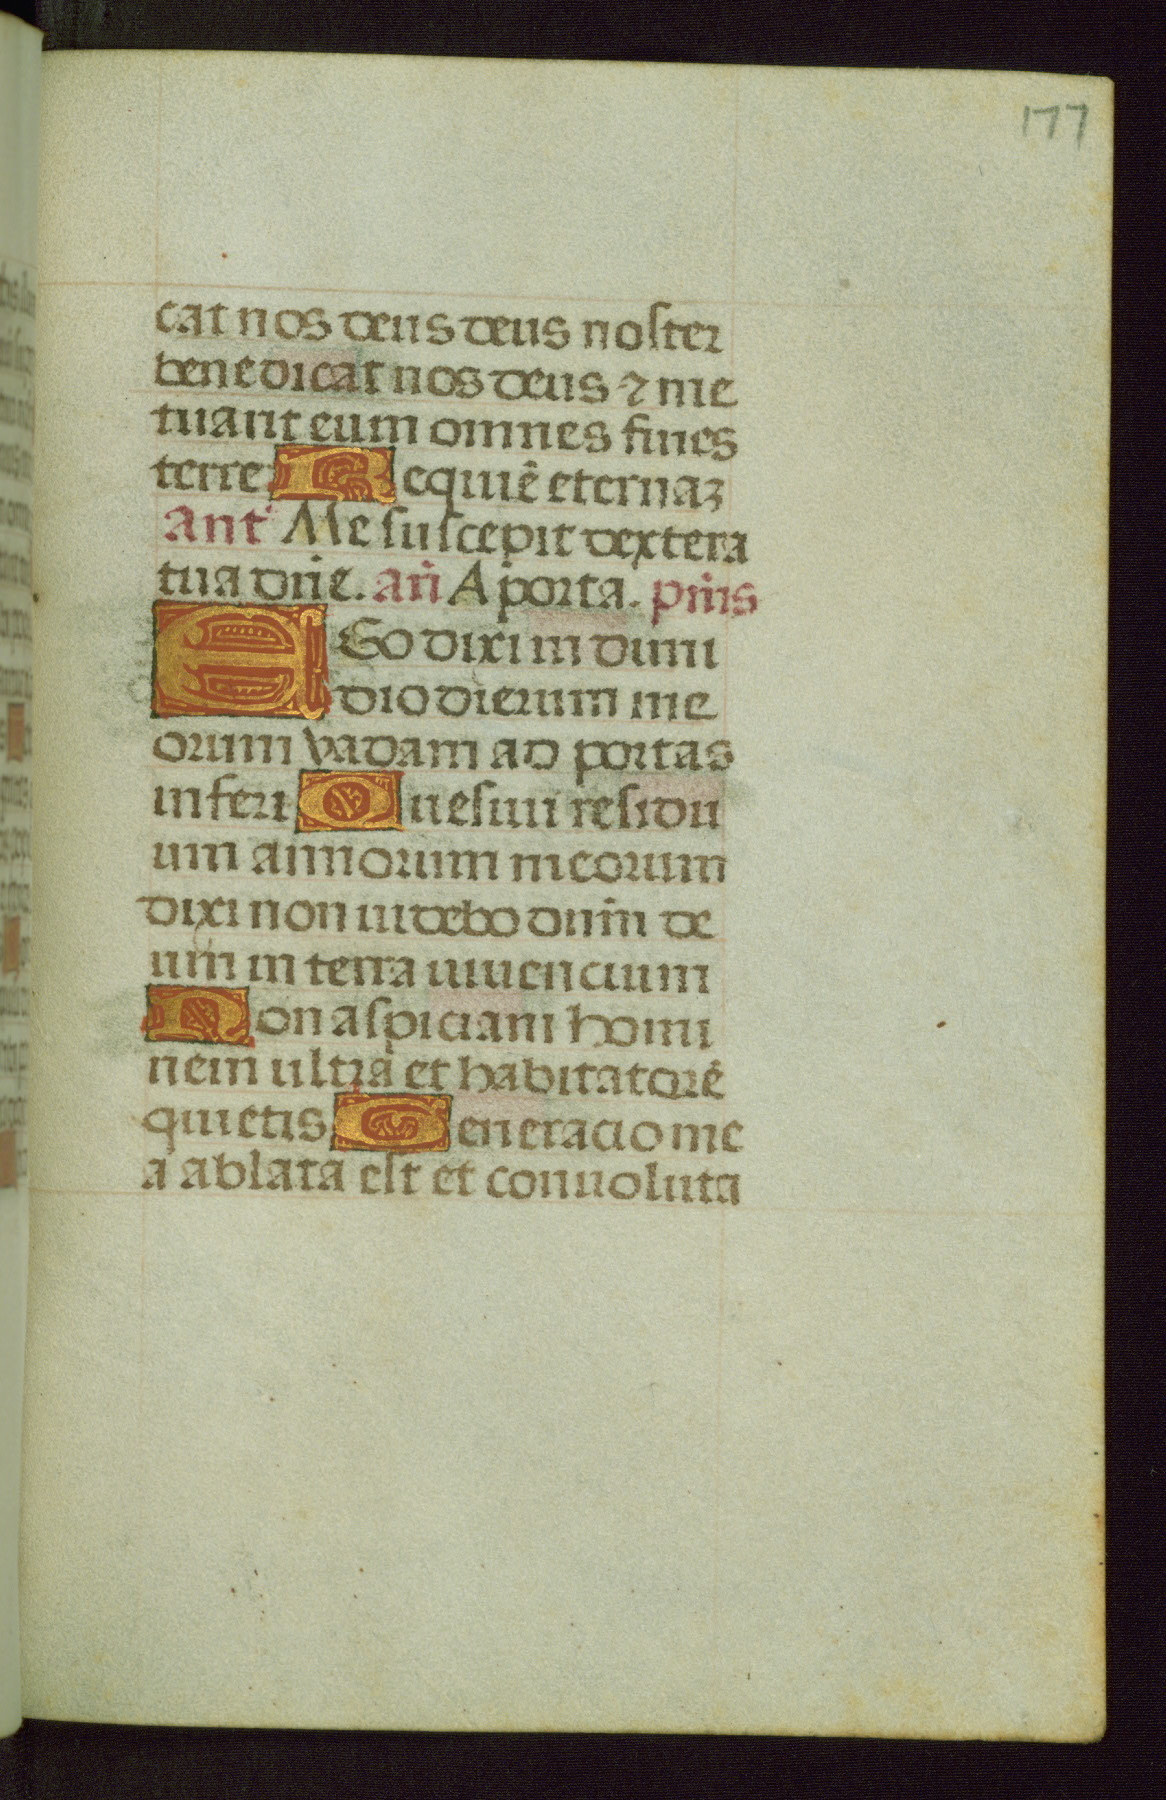 177
cat nos deus deus noster
benedicat nos deus ⁊ me
tuant eum omnes fines
terre Requiē eternaꝫ
ant Me suscepit dextera
tua dn̄e. an̄ A porta. pm̄s
EGo dixi in dimi
dio dierum me
orum vadam ad portas
inferi Quesiui residu
um annorum meorum
dixi non uidebo dnm̄ de
um in terra uiuencium
Non aspiciam homi
nem ultra et habitatorē
quietis Generacio me
a ablata est et conuoluta